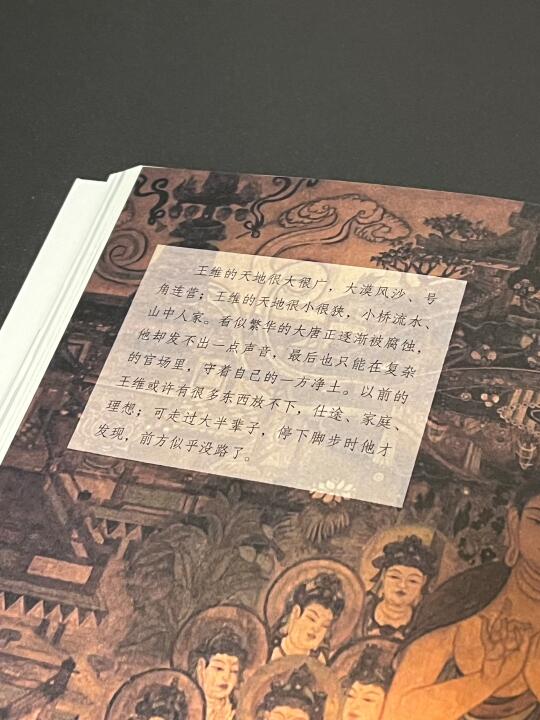 王维的天地很大很广，大漠风沙、号
角连营；王维的天地很小很狭，小桥流水、
山中人家。看似繁华的大唐正逐渐被腐蚀，
他却发不出一点声音，最后也只能在复杂
的官场里，守着自己的一方净土。以前的
王维或许有很多东西放不下，仕途、家庭、
理想；可走过大半辈子，停下脚步时他才
发现，前方似乎没路了。